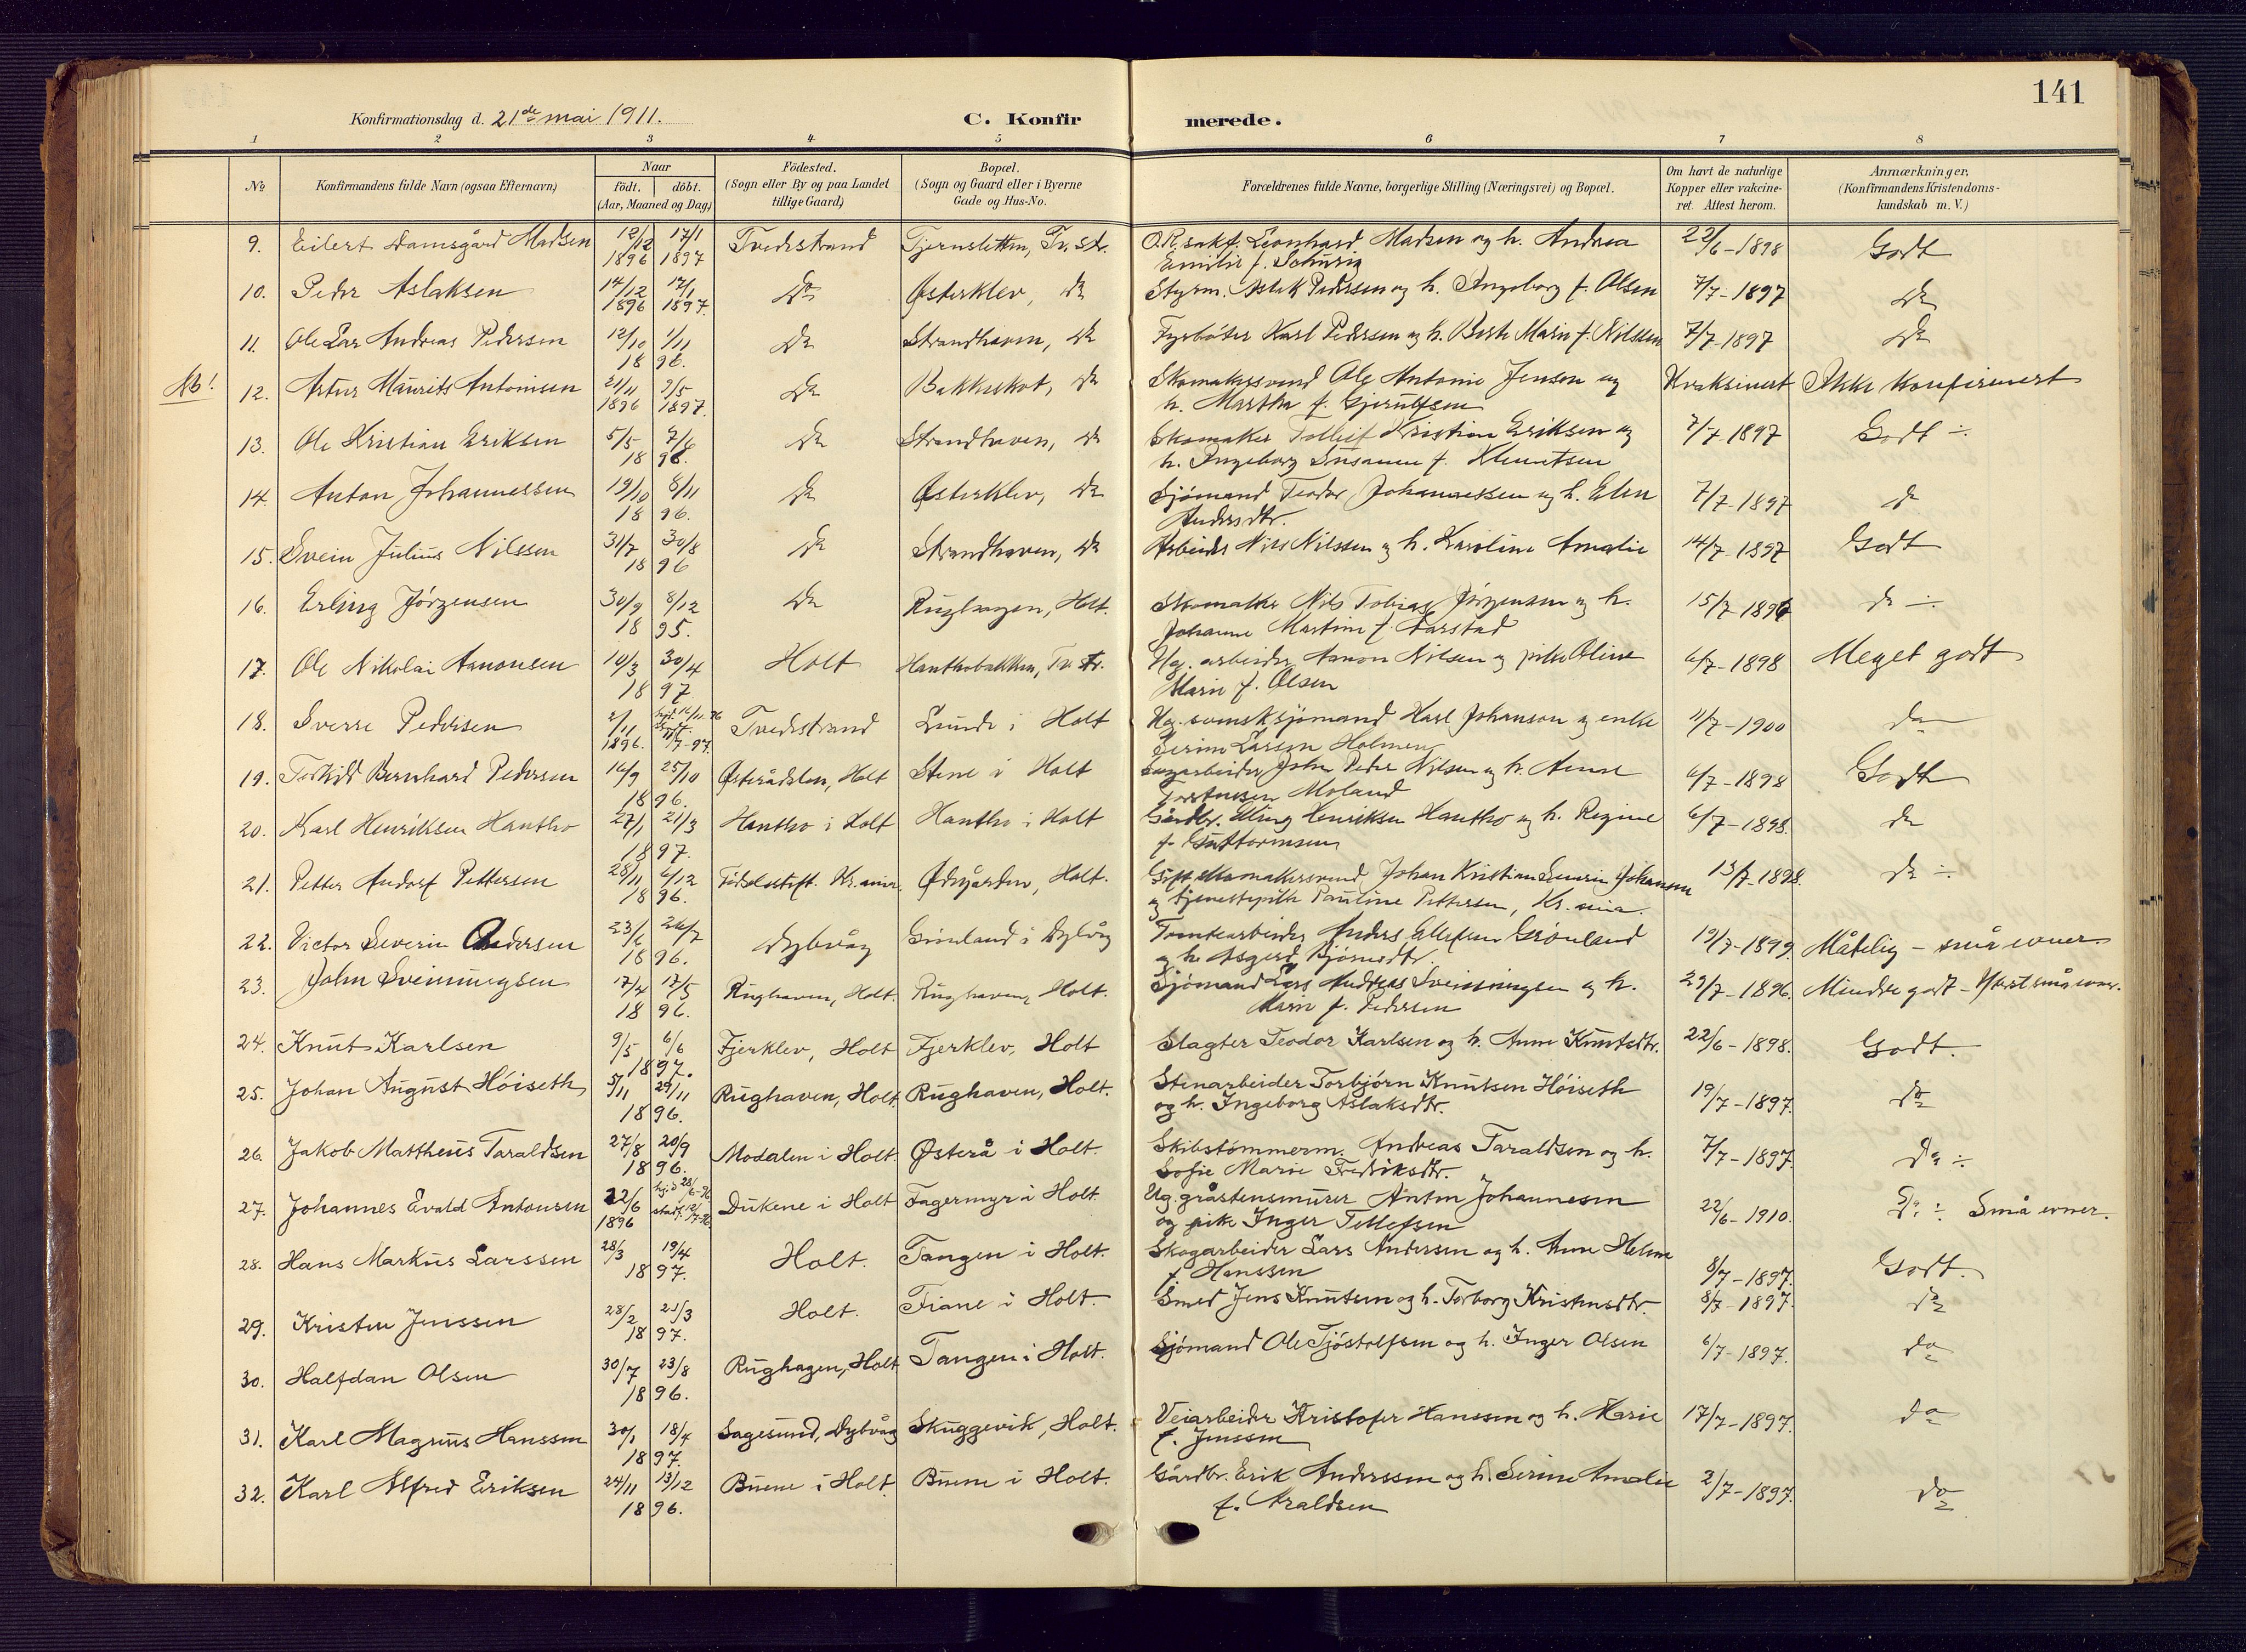 141
Konfirmationsdag d. 21de mai 1911.
C. Konfir merede.
1 2 3 4 5 6 7 8
No
Konfirmandens fulde Navn (ogsaa Efternavn)
Naar
födt. döbt.
(Aar, Maaned og Dag)
Födested.
(Sogn eller By og paa Landet
tillige Gaard)
Bopæl.
(Sogn og Gaard eller i Byerne
Gade og Hus-No.
Forældrenes fulde Navne, borgerlige Stilling (Næringsvei) og Bopæl.
Om havt de naturlige
Kopper eller vakcine-
ret. Attest herom.
Anmærkninger.
(Konfirmandens Kristendoms-
kundskab m. V.)
9. Eilert Damsgård Madsen 12/12 1896 17/1 1897 Tvedestrand Tjernsletten, Tv. str. O.R. sakf. Leonhard Madsen og h. Andrea 22/6-1898 Godt
Emilie f. Schurig
10. Peder Aslaksen 14/12 1896 17/1 1897. do Østerklev, do Styrm. Aslak Pedersen og h. Ingeborg f. Olsen 7/7-1897 do
11. Ole Lar Andreas Pedersen 12/10 1/11 1896. do Strandhaven, do Fyrbøter Karl Pedersen og h. Berte Marie f. Nilssen 7/7-1897 do
Nb! 12. Artur Maurits Antonisen 21/11 1896 9/5 1897. do Bakkeskot, do Skomakersvend Ole Antonie Jenson og Vaksinert Ikke konfirmert
h. Martha f. Gjerulfsen
13. Ole Kristian Eriksen 5/5 7/6 1896. do Strandhaven, do Skomaker Tollef Kristian Eriksen og 7/7-1897 Godt ÷
h. Ingeborg Susanne f. Klemetsen
14. Anton Johannessen 19/10 8/11 1896. do Østerklev, do Sjömand Teodor Johannessen og h. Elen 7/7-1897 do
Andersdtr.
15. Svein Julius Nilssen 31/7 30/8 1896 do Strandhaven, do Arbeider Nils Nilssen og h. Karoline Amalie 14/7-1897 Godt
16. Erling Jörgensen 30/9 8/12 1895. do Rughagen, Holt. Skomaker Nils Tobias Jörgensen og h. 15/7 1896 do ÷
Johanne Martine f. Aarstad
17. Ole Nikolai Aanonsen 10/3 30/4 1897 Holt Hanthobakken, Tv. str. Ug. arbeider Aanon Nilsen og pike Oline 6/7-1898 Meget godt
Marie f. Olsen
18. Sverre Pedersen 2/11 1896. Tvedestrand Lunde i Holt Ug. svensk sjömand Karl Johanson og enke 11/7-1900 do
Serine Larsen Holmen
19. Terkild Bernhard Pedersen 16/9 25/10 1896. Østerådalen, Holt Stene i Holt Sagarbeider John Peder Nilsen og h. Anne 6/7-1898 Godt
Torstensen Moland
20. Karl Henriksen Hantho 27/1 21/3 1897. Hantho i Holt Hantho i Holt Gårdbr. Elling Henriksen Hantho og h. Regine 6/7-1898. do
f. Guttormsen
21. Petter Andorf Pettersen 28/11 6/12 1896. Födselsstift. Kr.ania. Ødegården, Holt. Gift skomakersvend Johan Kristian Severin Johansen 13/7-1898. do ÷
og tjenestepike Pauline Pettersen, Kr.ania.
22. Victor Severin Andersen 23/6 26/7 1896. Dybvåg Grönland i Dybvåg Tomtearbeider Anders Ellefsen Grönland 19/7-1899. Måtelig - små evner.
og h. Asgerd Björnsdtr.
23. John Sveinungsen 17/4 17/5 1896. Rughaven, Holt. Rughaven, Holt. Sjömand Lars Andreas Sveinungsen og h. 29/7-1896. Mindre godt - Yderst små evner.
Marie f. Pedersen
24. Knut Karlsen 9/5 6/6 1897. Fjerklev, Holt Fjerklev, Holt Slagter Teodor Karlsen og h. Anne Knutsdtr. 22/6-1898. Godt.
25. Johan August Höiseth 5/11 29/11 1896. Rughaven, Holt. Rughaven, Holt. Stenarbeider Torbjörn Knutsen Höiseth 19/7-1897. do
og h. Ingeborg Aslaksdtr.
26. Jakob Mattheus Taraldsen 27/8 20/9 1896. Modalen i Holt. Østerå i Holt. Skibstömmerm. Andreas Taraldsen og h. 7/7-1897. do ÷
Sofie Marie Fredriksdtr.
27. Johannes Evald Antonsen 22/6 1896 hj.d 28/6-96 stadf. 12/7-96 Dukene i Holt Fagermyr i Holt. Ug. gråstensmurer Anton Johannesen 22/6-1910. do ÷ Små evner.
og pike Inger Tellefsen
28. Hans Markus Larssen 28/3 19/4 1897. Holt. Tangen i Holt. Skogarbeider Lars Andersen og h. Anne Helene 8/7-1897. Godt.
f. Hanssen
29. Kristen Jenssen 28/2 21/3 1897. Holt. Fiane i Holt. Smed Jens Knutsen og h. Torborg Kristensdtr. 8/7-1897. do
30. Halfdan Olsen 30/7 23/8 1896. Rughagen, Holt Tangen i Holt. Sjömand Ole Tjöstolfsen og h. Inger Olsen 6/7-1897. do
31. Karl Magnus Hanssen 30/1 18/4 1897. Sagesund, Dybvåg Skuggevik, Holt. Veiarbeider Kristofer Hanssen og h. Marie 17/7-1897. do
f. Jenssen
32. Karl Alfred Eriksen 24/11 13/12 1896. Buene i Holt. Buene i Holt. Gårdbr. Erik Anderssen og h. Serine Amalie 2/7-1897. do
f. Araldsen